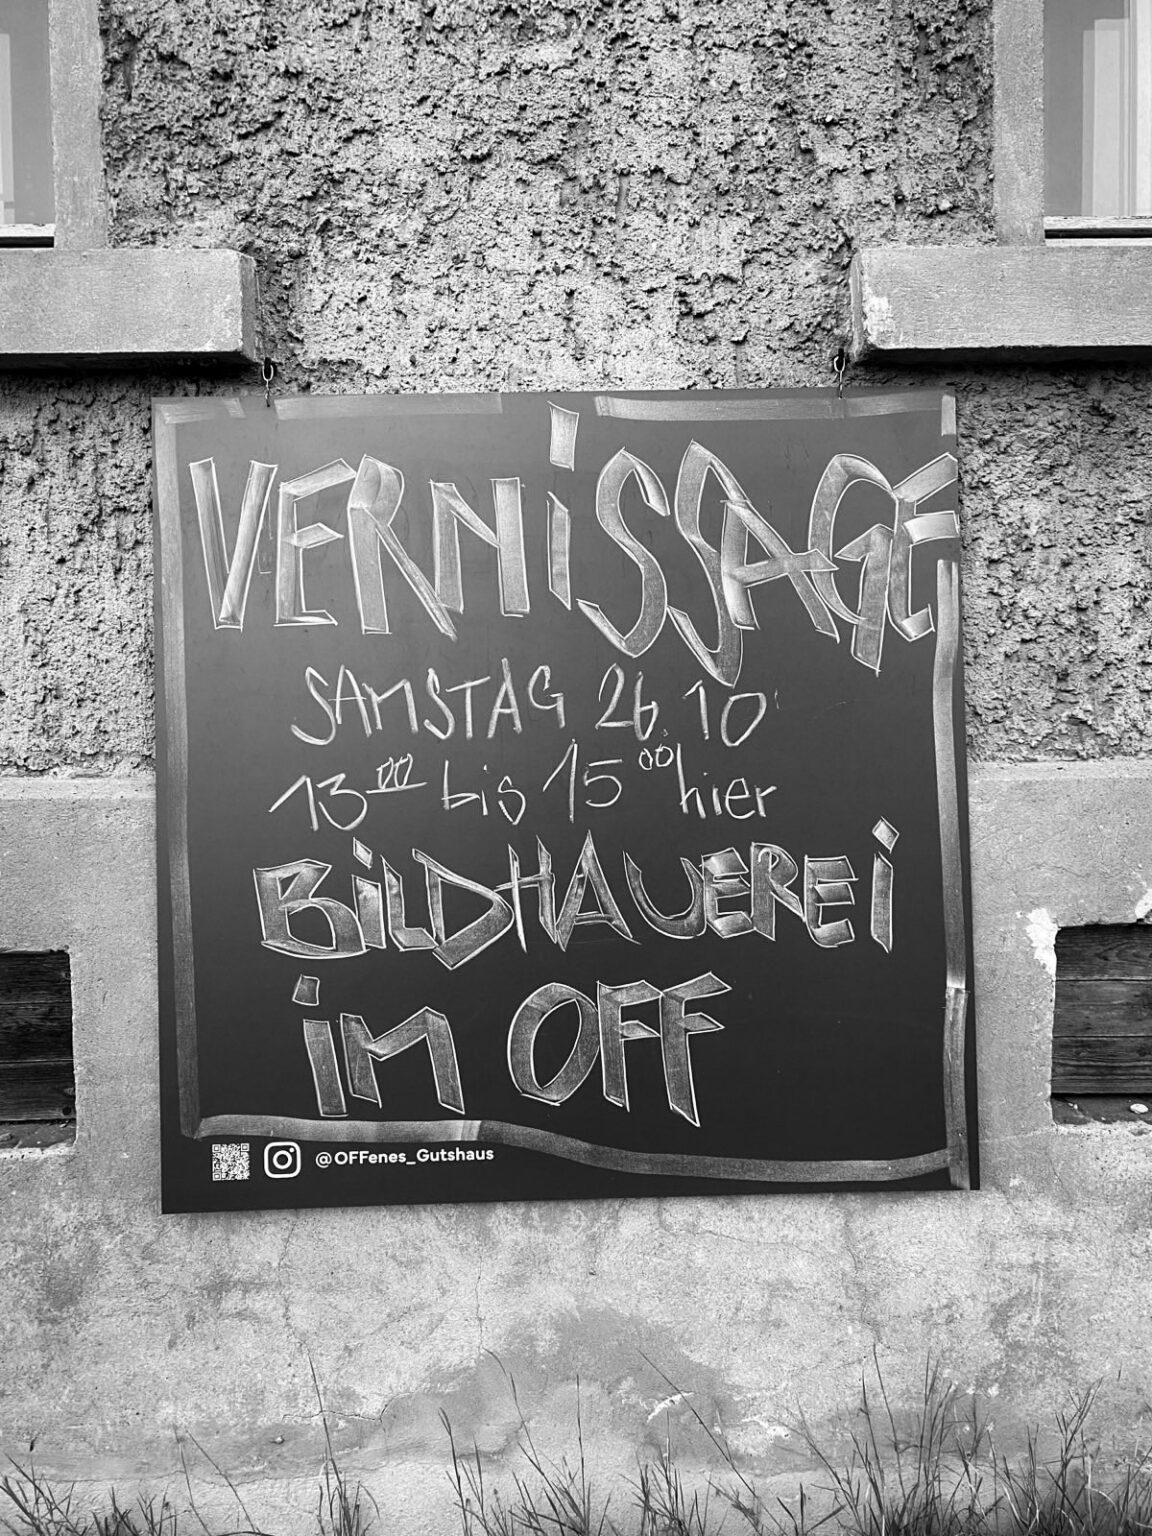 VERNiSSAGE
SAMSTAG 26.10
13⁰⁰ bis 15⁰⁰ hier
BiLDHAUEREi
iM OFF
@OFFenes_Gutshaus